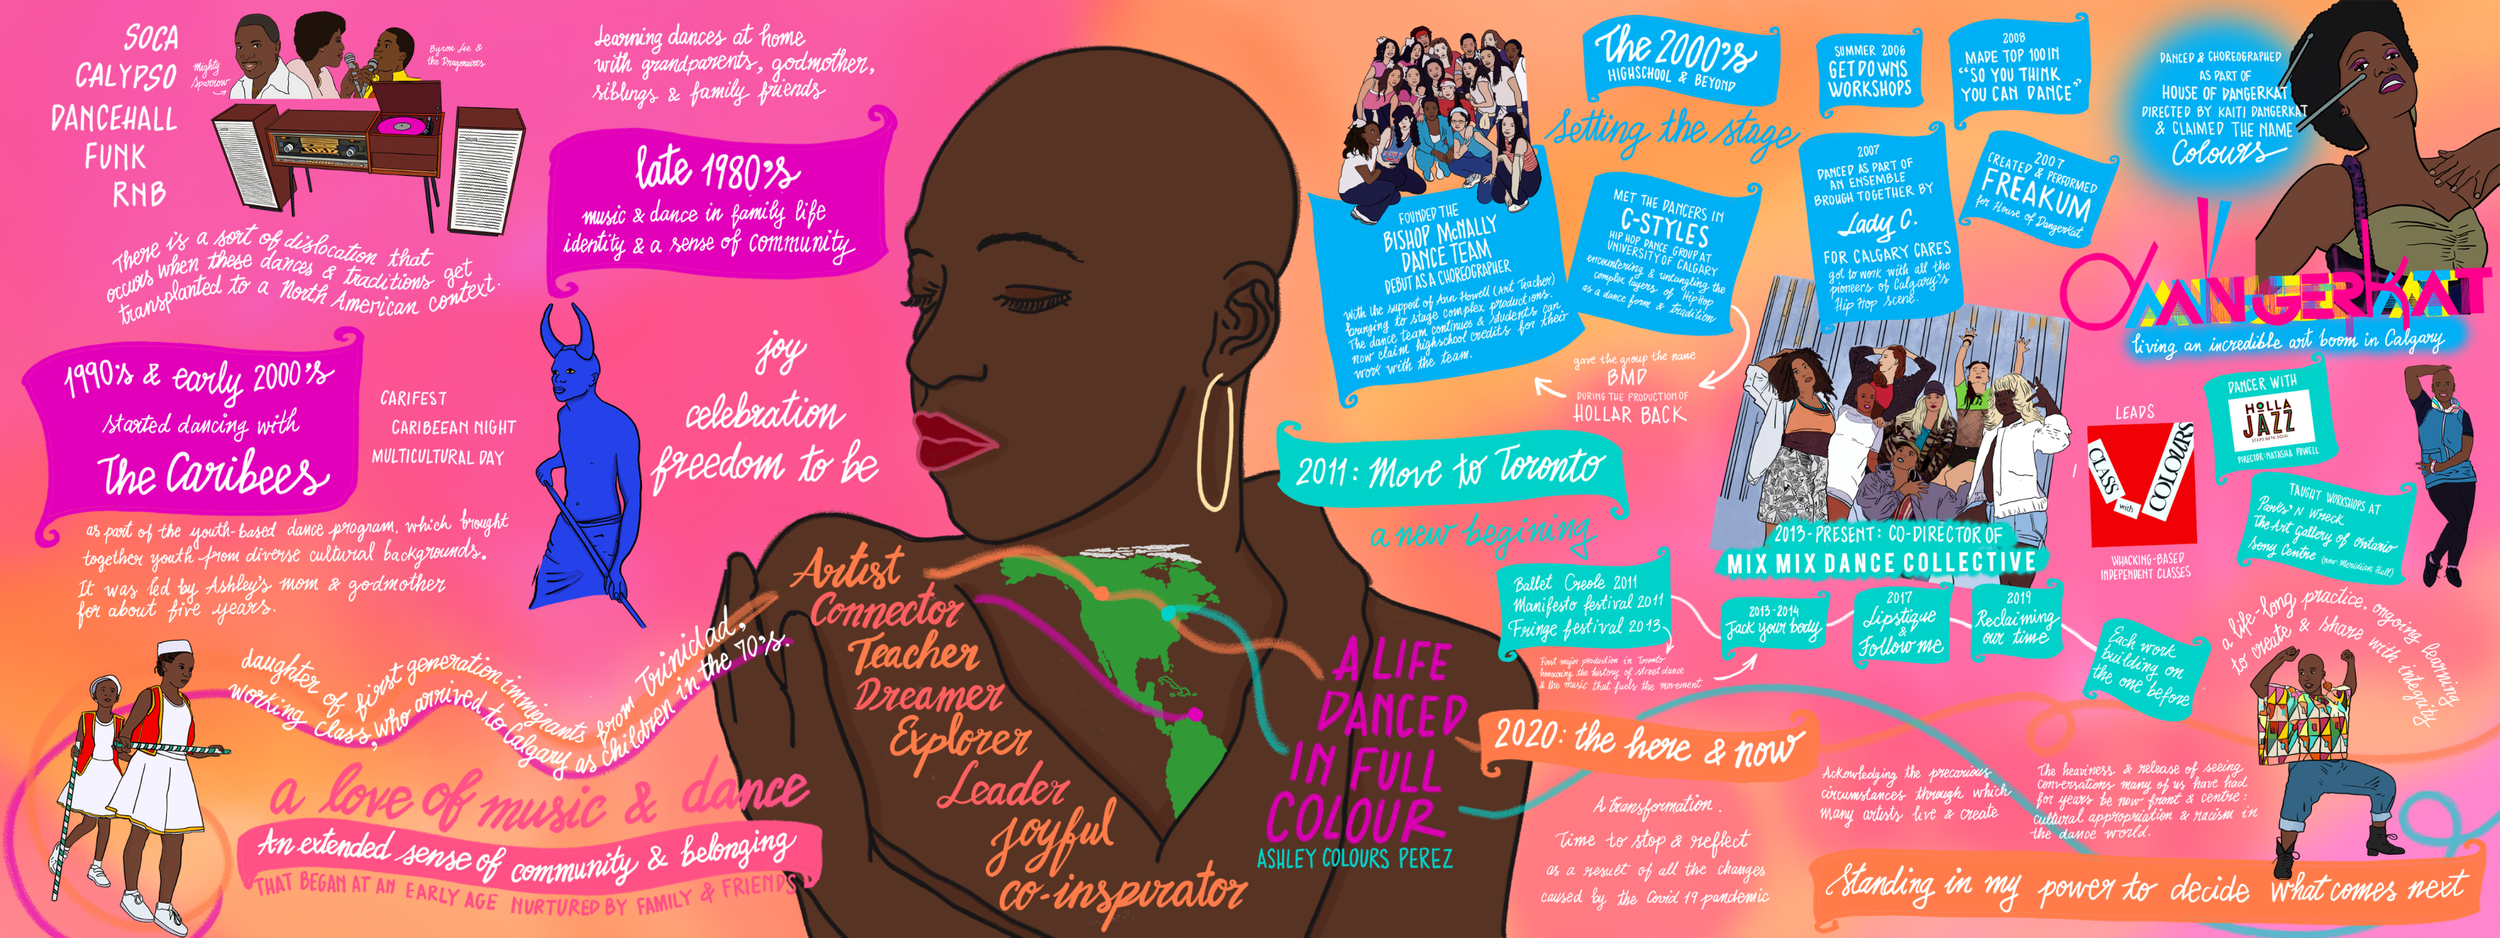 SOCA
CALYPSO
DANCEHALL
FUNK
RNB
mighty
Sparrow
Byron Lee &
the Dragonaires
There is a sort of dislocation that
occurs when these dances & traditions get
transplanted to a North American context.
Learning dances at home
with grandparents, godmother,
siblings & family friends
late 1980's
music & dance in family life
identity & a sense of community
1990's & early 2000's
started dancing with
The Caribees
CARIFEST
CARIBEEAN NIGHT
MULTICULTURAL DAY
as part of the youth-based dance program, which brought
together youth from diverse cultural backgrounds.
It was led by Ashley's mom & godmother
for about five years.
joy
celebration
freedom to be
daughter of first generation immigrants from Trinidad,
working class, who arrived to Calgary as children in the 70's.
a love of music & dance
An extended sense of community & belonging
THAT BEGAN AT AN EARLY AGE NURTURED BY FAMILY & FRIENDS
Artist
Connector
Teacher
Dreamer
Explorer
Leader
joyful
co-inspirator
A LIFE
DANCED
IN FULL
COLOUR
ASHLEY COLOURS PEREZ
The 2000's
HIGHSCHOOL & BEYOND
Setting the stage
FOUNDED THE
BISHOP McNALLY
DANCE TEAM
DEBUT AS A CHOREOGRAPHER
With the support of Ann Howell (Art Teacher)
bringing to stage complex productions.
The dance team continues & students can
now claim highschool credits for their
work with the team.
MET THE DANCERS IN
C-STYLES
HIP HOP DANCE GROUP AT
UNIVERSITY OF CALGARY
encountering & untangling the
complex layers of Hip Hop
as a dance form & tradition
gave the group the name
BMD
DURING THE PRODUCTION OF
HOLLAR BACK
SUMMER 2006
GETDOWNS
WORKSHOPS
2008
MADE TOP 100 IN
"SO YOU THINK
YOU CAN DANCE"
2007
DANCED AS PART OF
AN ENSEMBLE
BROUGH TOGETHER BY
Lady C.
FOR CALGARY CARES
got to work with all the
pioneers of Calgary's
Hip Hop scene.
2007
CREATED & PERFORMED
FREAKUM
for House of Dangerkat
DANCED & CHOREOGRAPHED
AS PART OF
HOUSE OF DANGERKAT
DIRECTED BY KAITI DANGERKAT
& CLAIMED THE NAME
Colours
DANGERKAT
living an incredible art boom in Calgary
2011: Move to Toronto
a new begining
Ballet Creole 2011
Manifesto festival 2011
Fringe festival 2013
First major production in Toronto
honouring the history of street dance
& the music that fuels the movement
2013-PRESENT: CO-DIRECTOR OF
MIX MIX DANCE COLLECTIVE
2013-2014
Jack your body
2017
Lipstique
&
Follow me
2019
Reclaiming
our time
Each work
building on
the one before
LEADS
CLASS
with
COLOURS
WHACKING-BASED
INDEPENDENT CLASSES
DANCER WITH
HOLLA
JAZZ
DIRECTOR: NATASHA POWELL
TAUGHT WORKSHOPS AT
Parks' N Wreck
The Art Gallery of Ontario
Sony Centre (now Meridian Hall)
a life-long practice, ongoing learning
to create & share with integrity
2020: the here & now
A transformation.
Time to stop & reflect
as a result of all the changes
caused by the Covid 19 pandemic
Ackowledging the precarious
circumstances through which
many artists live & create
The heaviness & release of seeing
conversations many of us have had
for years be now front & centre:
cultural appropriation & racism in
the dance world.
Standing in my power to decide what comes next